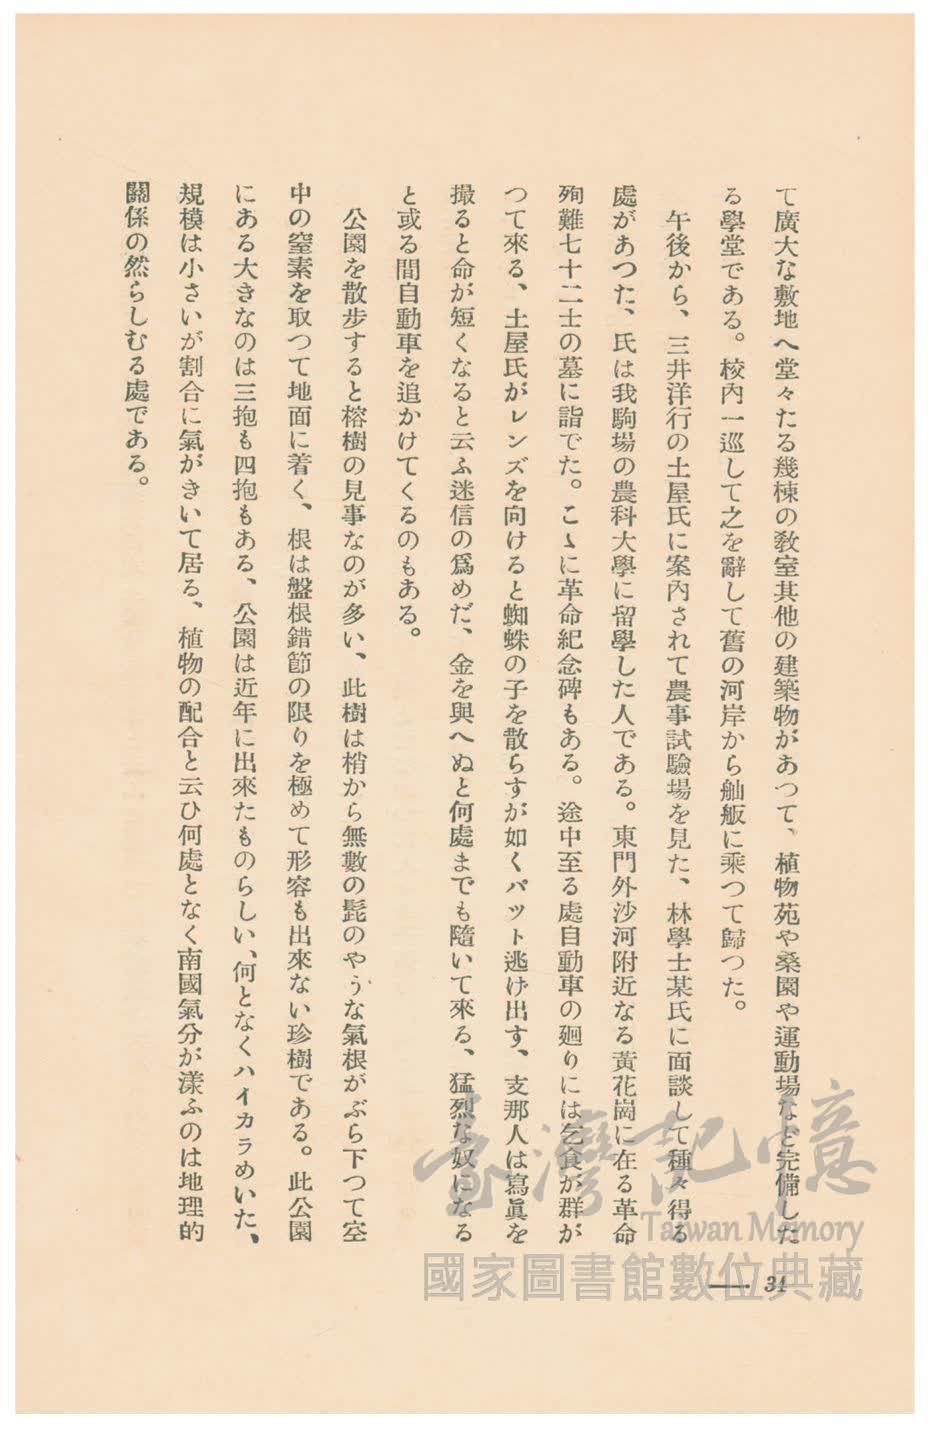 て廣大な敷地へ堂々たる幾棟の教室其他の建築物があつて、植物苑や桑園や運動場など完備した
る學堂である。校内一巡して之を辭して舊の河岸から舢舨に乘つて歸つた。
午後から、三井洋行の土屋氏に案内されて農事試驗場を見た、林學士某氏に面談して種々得る
處があつた、氏は我駒場の農科大學に留學した人である。東門外沙河附近なる黃花崗に在る革命
殉難七十二士の墓に詣でた。こゝに革命紀念碑もある。途中至る處自動車の廻りには乞食が群が
つて來る、土屋氏がレンズを向けると蜘蛛の子を散らすが如くパット逃げ出す、支那人は寫眞を
撮ると命が短くなると云ふ迷信の爲めだ、金を與へぬと何處までも隨いて來る、猛烈な奴になる
と或る間自動車を追かけてくるのもある。
公園を散步すると榕樹の見事なのが多い、此樹は梢から無數の髭のやうな氣根がぶら下つて空
中の窒素を取つて地面に着く、根は盤根錯節の限りを極めて形容も出來ない珍樹である。此公園
にある大きなのは三抱も四抱もある、公園は近年に出來たものらしい、何となくハイカラめいた、
規模は小さいが割合に氣がきいて居る、植物の配合と云ひ何處となく南國氣分が漾ふのは地理的
關係の然らしむる處である。
臺灣記憶
Taiwan Memory
國家圖書館數位典藏
34